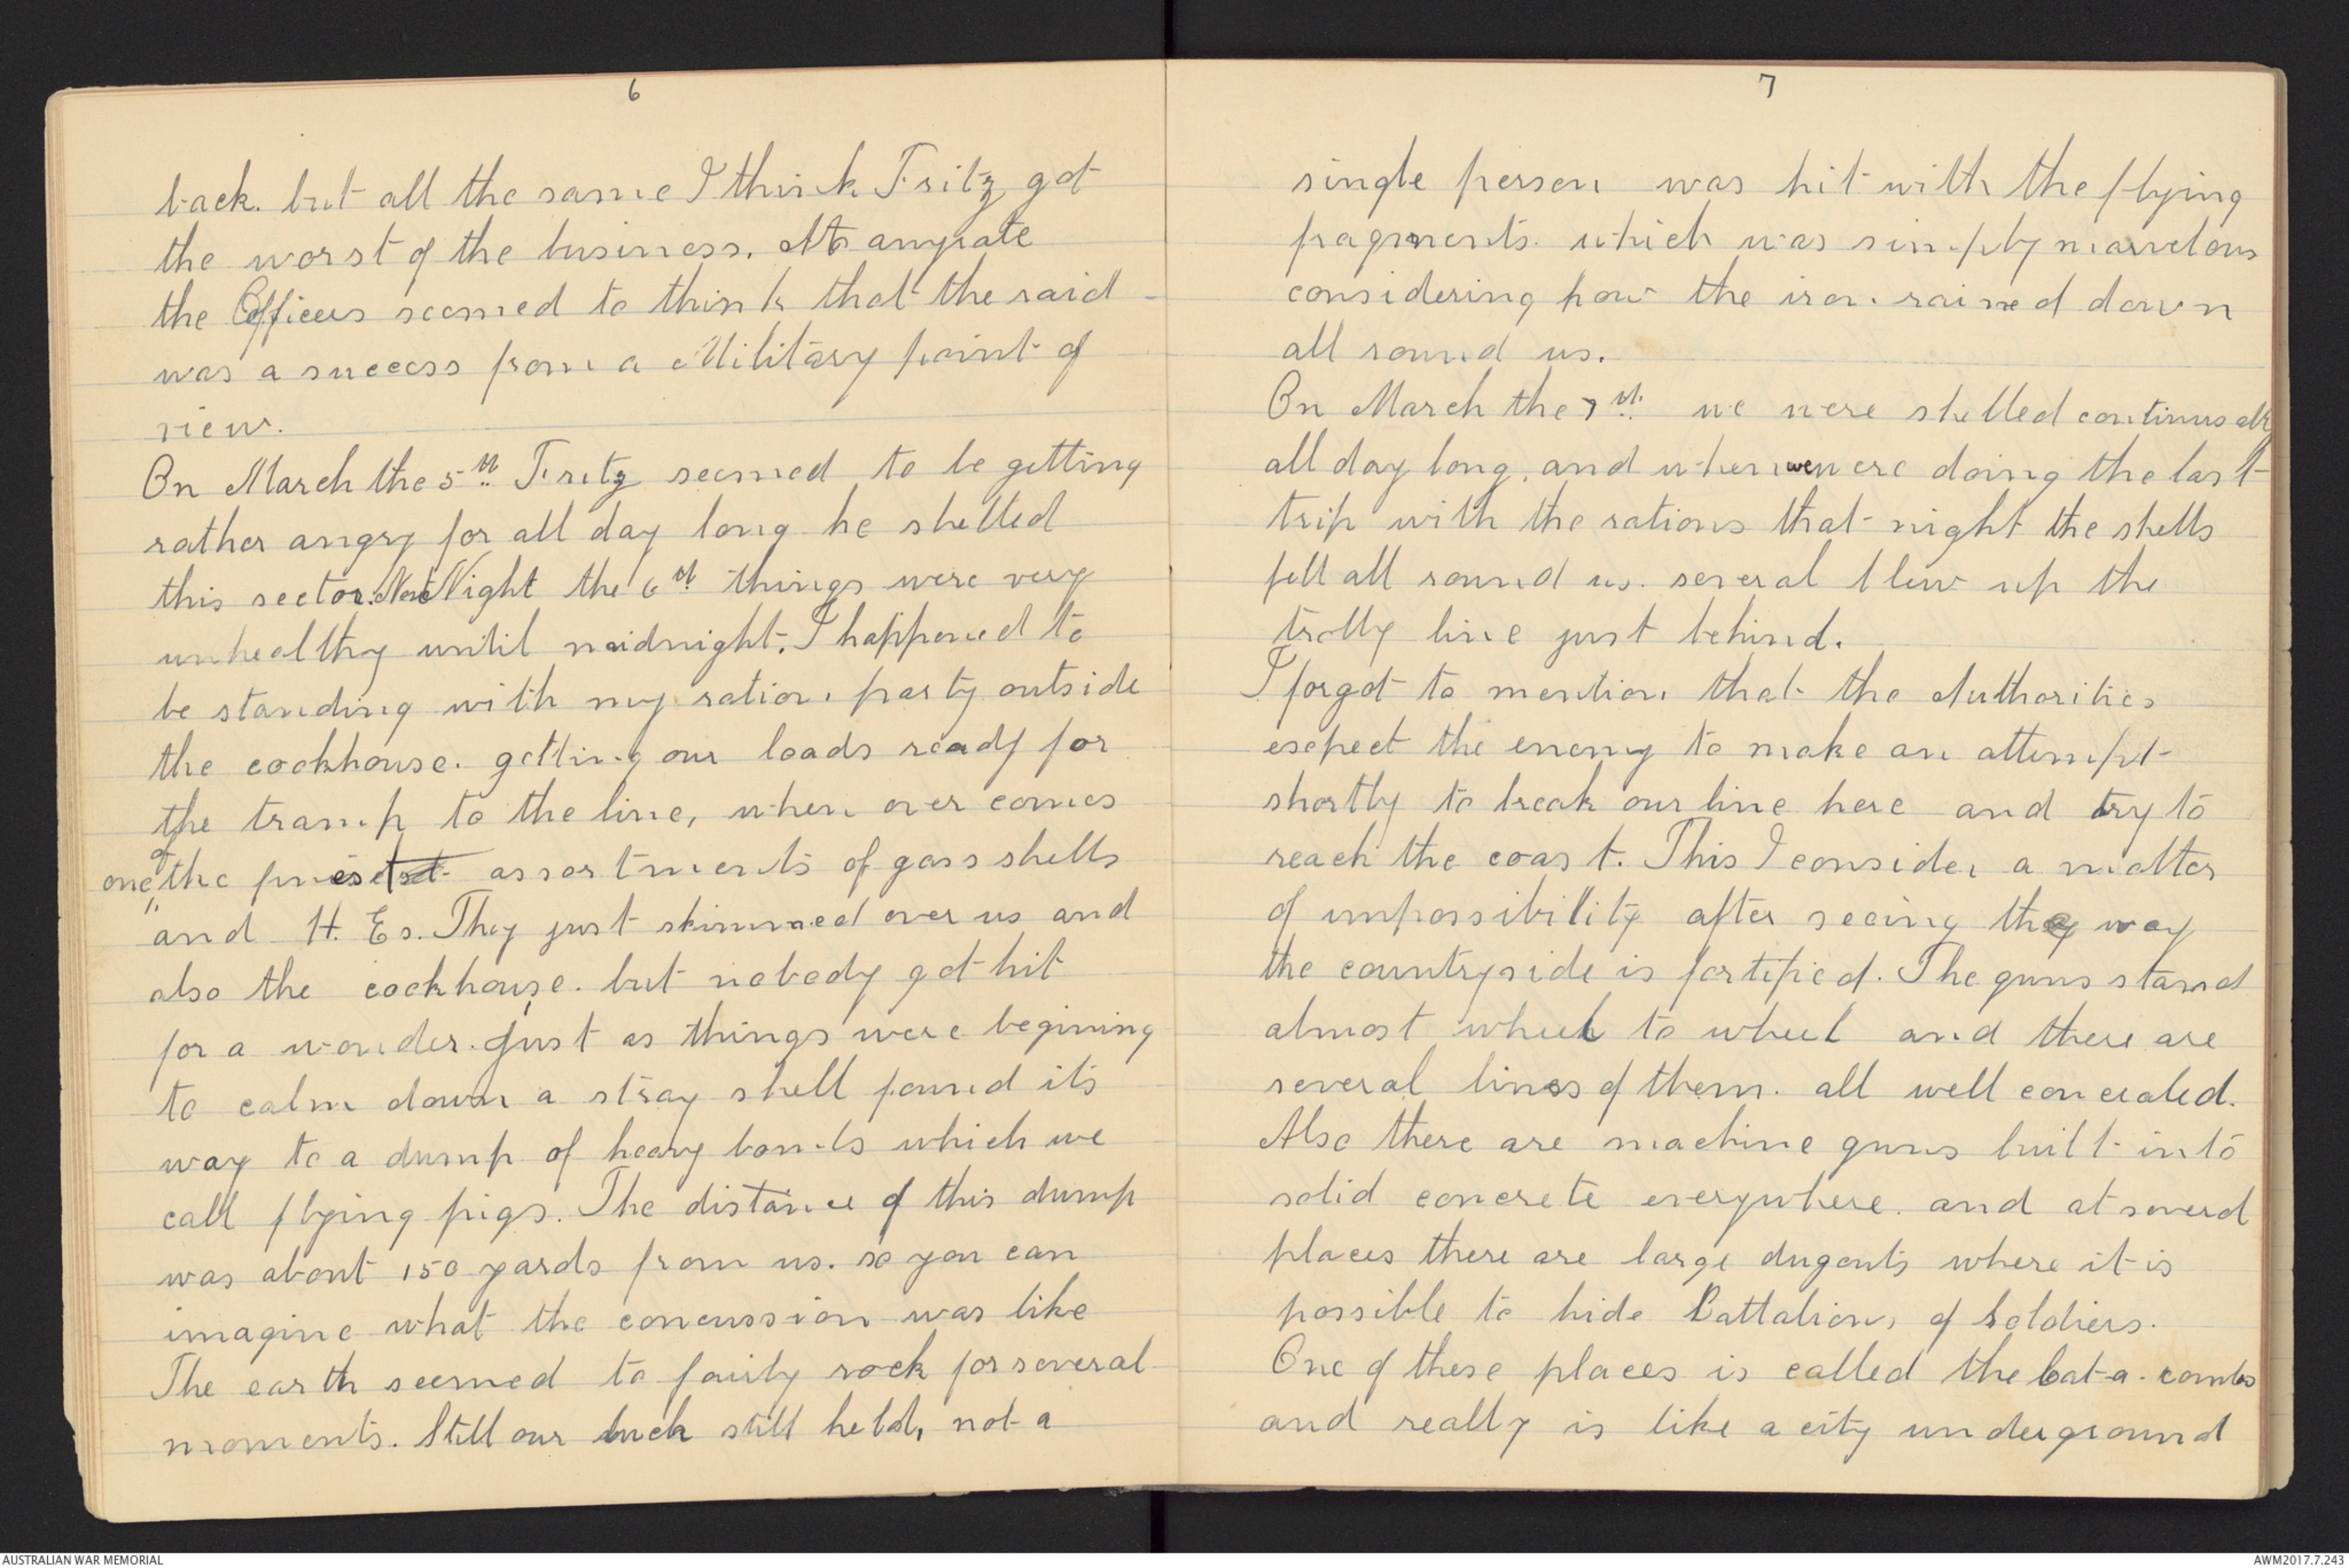 6
back. but all the same I think Fritz got
the worst of the business. At anyrate
the Officers seemed to think that the raid
was a success from a Military point of
view.
On March the 5th Fritz seemed to be getting
rather angry for all day long he shelled
this sector. Next Night the 6th things were very
unhealthy until midnight. I happened to
be standing with my ration party outside
the cookhouse. getting our loads ready for
the tramp to the line, when over comes
one of the assortments of gass shells
and H. Es. They just skimmed over us and
also the cookhouse. but nobody got hit
for a wonder. Just as things were begining
to calm down a stray shell found its
way to a dump of heavy bombs which we
call flying pigs. The distance of this dump
was about 150 yards from us. so you can
imagine what the concussion was like
The earth seemed to fairly rock for several
moments. Still our luck still held, not a
7
single person was hit with the flying
fragments. which was simply marvelous
considering how the iron rained down
all round us.
On March the 7th we were shelled continualy
all day long, and when we were doing the last
trip with the rations that night the shells
fell all round us. several blew up the
trolly line just behind.
I forgot to mention that the Authorities
expect the enemy to make an attempt
shortly to break our line here and try to
reach the coast. This I consider a matter
of impossibility after seeing the way
the countryside is fortified. The guns stand
almost wheel to wheel and there are
several lines of them. all well concealed.
Also there are machine guns built into
solid concrete everywhere. and at several
places there are large dugouts where it is
possible to hide Battalions of Soldiers.
One of these places is called the Cat-a-combs
and really is like a city underground
AUSTRALIAN WAR MEMORIAL
AWM2017.7.243